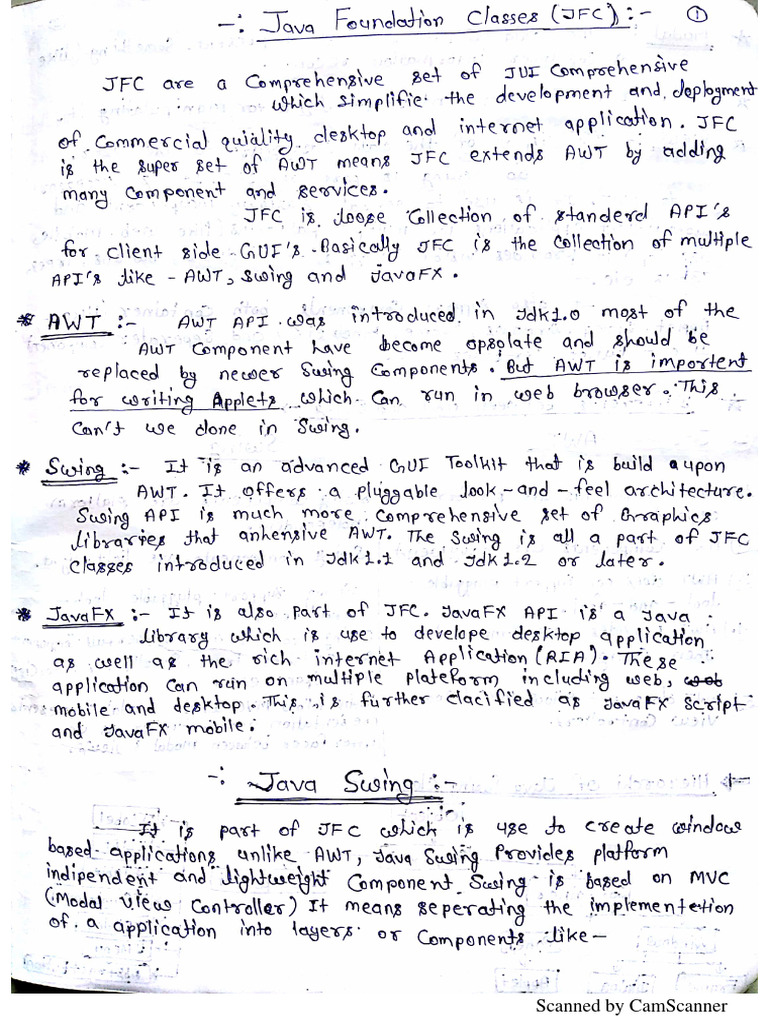 -: Java Foundation Classes (JFC) :- 1
JFC are a Comprehensive set of JUI Comprehensive
which simplifie the development and deployment
of commercial quiality desktop and internet application. JFC
is the super set of AWT means JFC extends AWT by adding
many component and services.
JFC is loose Collection of standerd API's
for client side GUI's. Basically JFC is the collection of multiple
API's like - AWT, Swing and JavaFX.
* AWT :- AWT API was introduced in Jdk1.0 most of the
AWT Component have become opsolate and should be
replaced by newer Swing Components. But AWT is importent
for writing Applets which can run in web browser. This
can't we done in Swing.
* Swing :- It is an advanced GUI Toolkit that is build upon
AWT. It offers a pluggable look-and-feel architecture.
Swing API is much more comprehensive set of Graphics
libraries that anhensive AWT. The Swing is all a part of JFC
classes introduced in Jdk1.1 and Jdk1.2 or later.
* JavaFX :- It is also part of JFC. JavaFX API is a Java
library which is use to develope desktop application
as well as the rich internet Application (RIA). These
application can run on multiple plateform including web,
mobile and desktop. This is further clacified as JavaFX Script
and JavaFX mobile.
-: Java Swing :-
It is part of JFC which is use to create window
based applications, unlike AWT, Java Swing Provides platform
indipendent and lightweight Component. Swing is based on MVC
(Modal View Controller) It means seperating the implementetion
of a application into layers or components like -
Scanned by CamScanner